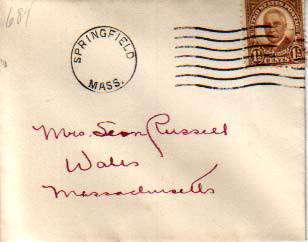 687
SPRINGFIELD
MASS.
1½ CENTS 1½
Mrs. Leon Russell
Wales
Massachusetts